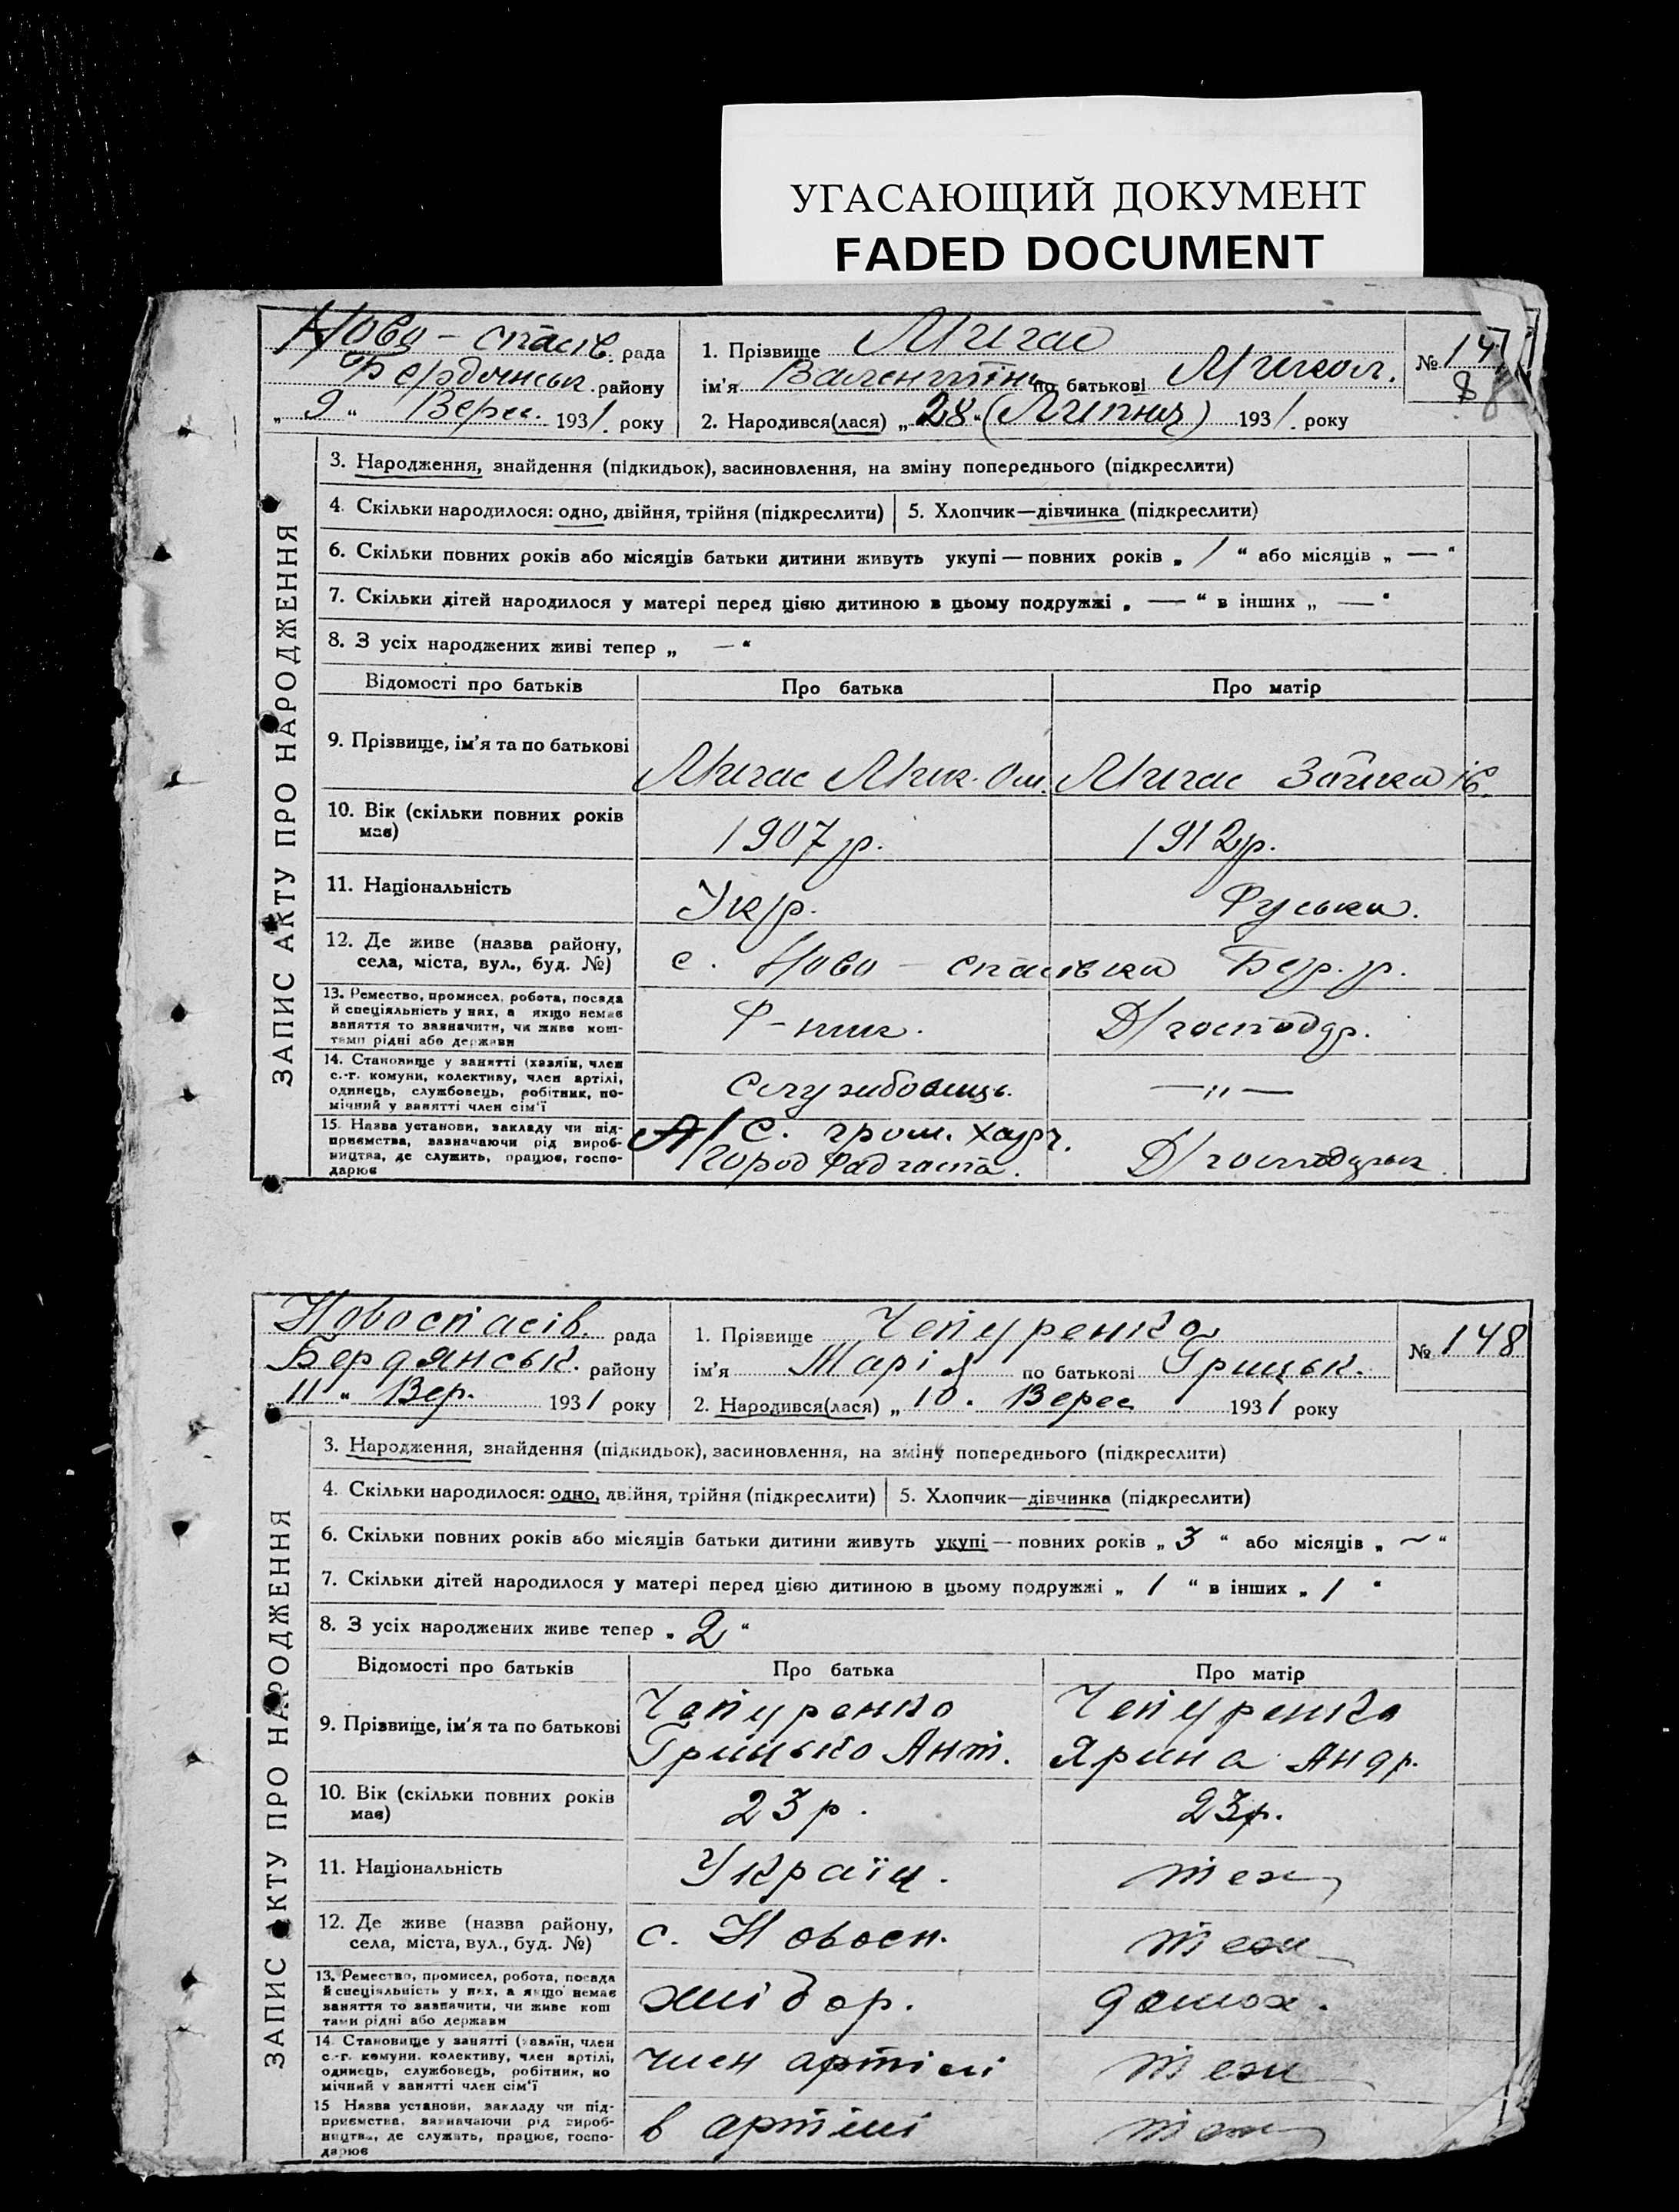 УГАСАЮЩИЙ ДОКУМЕНТ
FADED DOCUMENT
Ново-спасів. рада
Бердянськ. району
„ 9 “ Верес. 1931. року
1. Прізвище
ім'я Валентіна по батькові Микол.
2. Народився(лася) „28“ (Липня) 1931. року
№ 147
8
ЗАПИС АКТУ ПРО НАРОДЖЕННЯ
3. Народження, знайдення (підкидьок), засиновлення, на зміну попереднього (підкреслити)
4. Скільки народилося: одно, двійня, трійня (підкреслити)
5. Хлопчик—дівчинка (підкреслити)
6. Скільки повних років або місяців батьки дитини живуть укупі — повних років „ 1 “ або місяців „ — “
7. Скільки дітей народилося у матері перед цією дитиною в цьому подружжі „ — “ в інших „ — “
8. З усіх народжених живі тепер „ — “
Відомості про батьків
Про батька
Про матір
9. Прізвище, ім'я та по батькові
10. Вік (скільки повних років має)
1907 р.
1912 р.
11. Національність
Укр.
Руська.
12. Де живе (назва району, села, міста, вул., буд. №)
с. Ново-спасівка Бер. р.
13. Ремество, промисел, робота, посада й спеціяльність у них, а якщо немає заняття то зазначити, чи живе коштами рідні або держави
Д/господар.
14. Становище у занятті (хазяїн, член с.-г. комуни, колективу, член артілі, одинець, службовець, робітник, помічний у занятті член сім'ї
Службовець.
— „ —
15. Назва установи, закладу чи підприємства, зазначаючи рід виробництва, де служить, працює, господарює
С. гром. харч.
Д/господарка.
Новоспасів. рада
Бердянськ. району
„ 11 “ Вер. 1931 року
1. Прізвище Чепуренко
ім'я Марія по батькові Грицьк.
2. Народився(лася) „ 10. Верес 1931 року
№ 148
ЗАПИС АКТУ ПРО НАРОДЖЕННЯ
3. Народження, знайдення (підкидьок), засиновлення, на зміну попереднього (підкреслити)
4. Скільки народилося: одно, двійня, трійня (підкреслити)
5. Хлопчик—дівчинка (підкреслити)
6. Скільки повних років або місяців батьки дитини живуть укупі — повних років „ 3 “ або місяців „ ~ “
7. Скільки дітей народилося у матері перед цією дитиною в цьому подружжі „ 1 “ в інших „ 1 “
8. З усіх народжених живе тепер „ 2 “
Відомості про батьків
Про батька
Про матір
9. Прізвище, ім'я та по батькові
Чепуренко
Грицько Ант.
Чепуренко
Ярина Андр.
10. Вік (скільки повних років має)
23 р.
23 р.
11. Національність
Україн.
теж
12. Де живе (назва району, села, міста, вул., буд. №)
с. Новосп.
теж
13. Ремество, промисел, робота, посада й спеціяльність у них, а якщо немає заняття то зазначити, чи живе коштами рідні або держави
хлібор.
домох.
14. Становище у занятті (хазяїн, член с.-г. комуни, колективу, член артілі, одинець, службовець, робітник, помічний у занятті член сім'ї
член артілі
теж
15 Назва установи, закладу чи підприємства, зазначаючи рід виробництва, де служить, працює, господарює
в артілі
теж